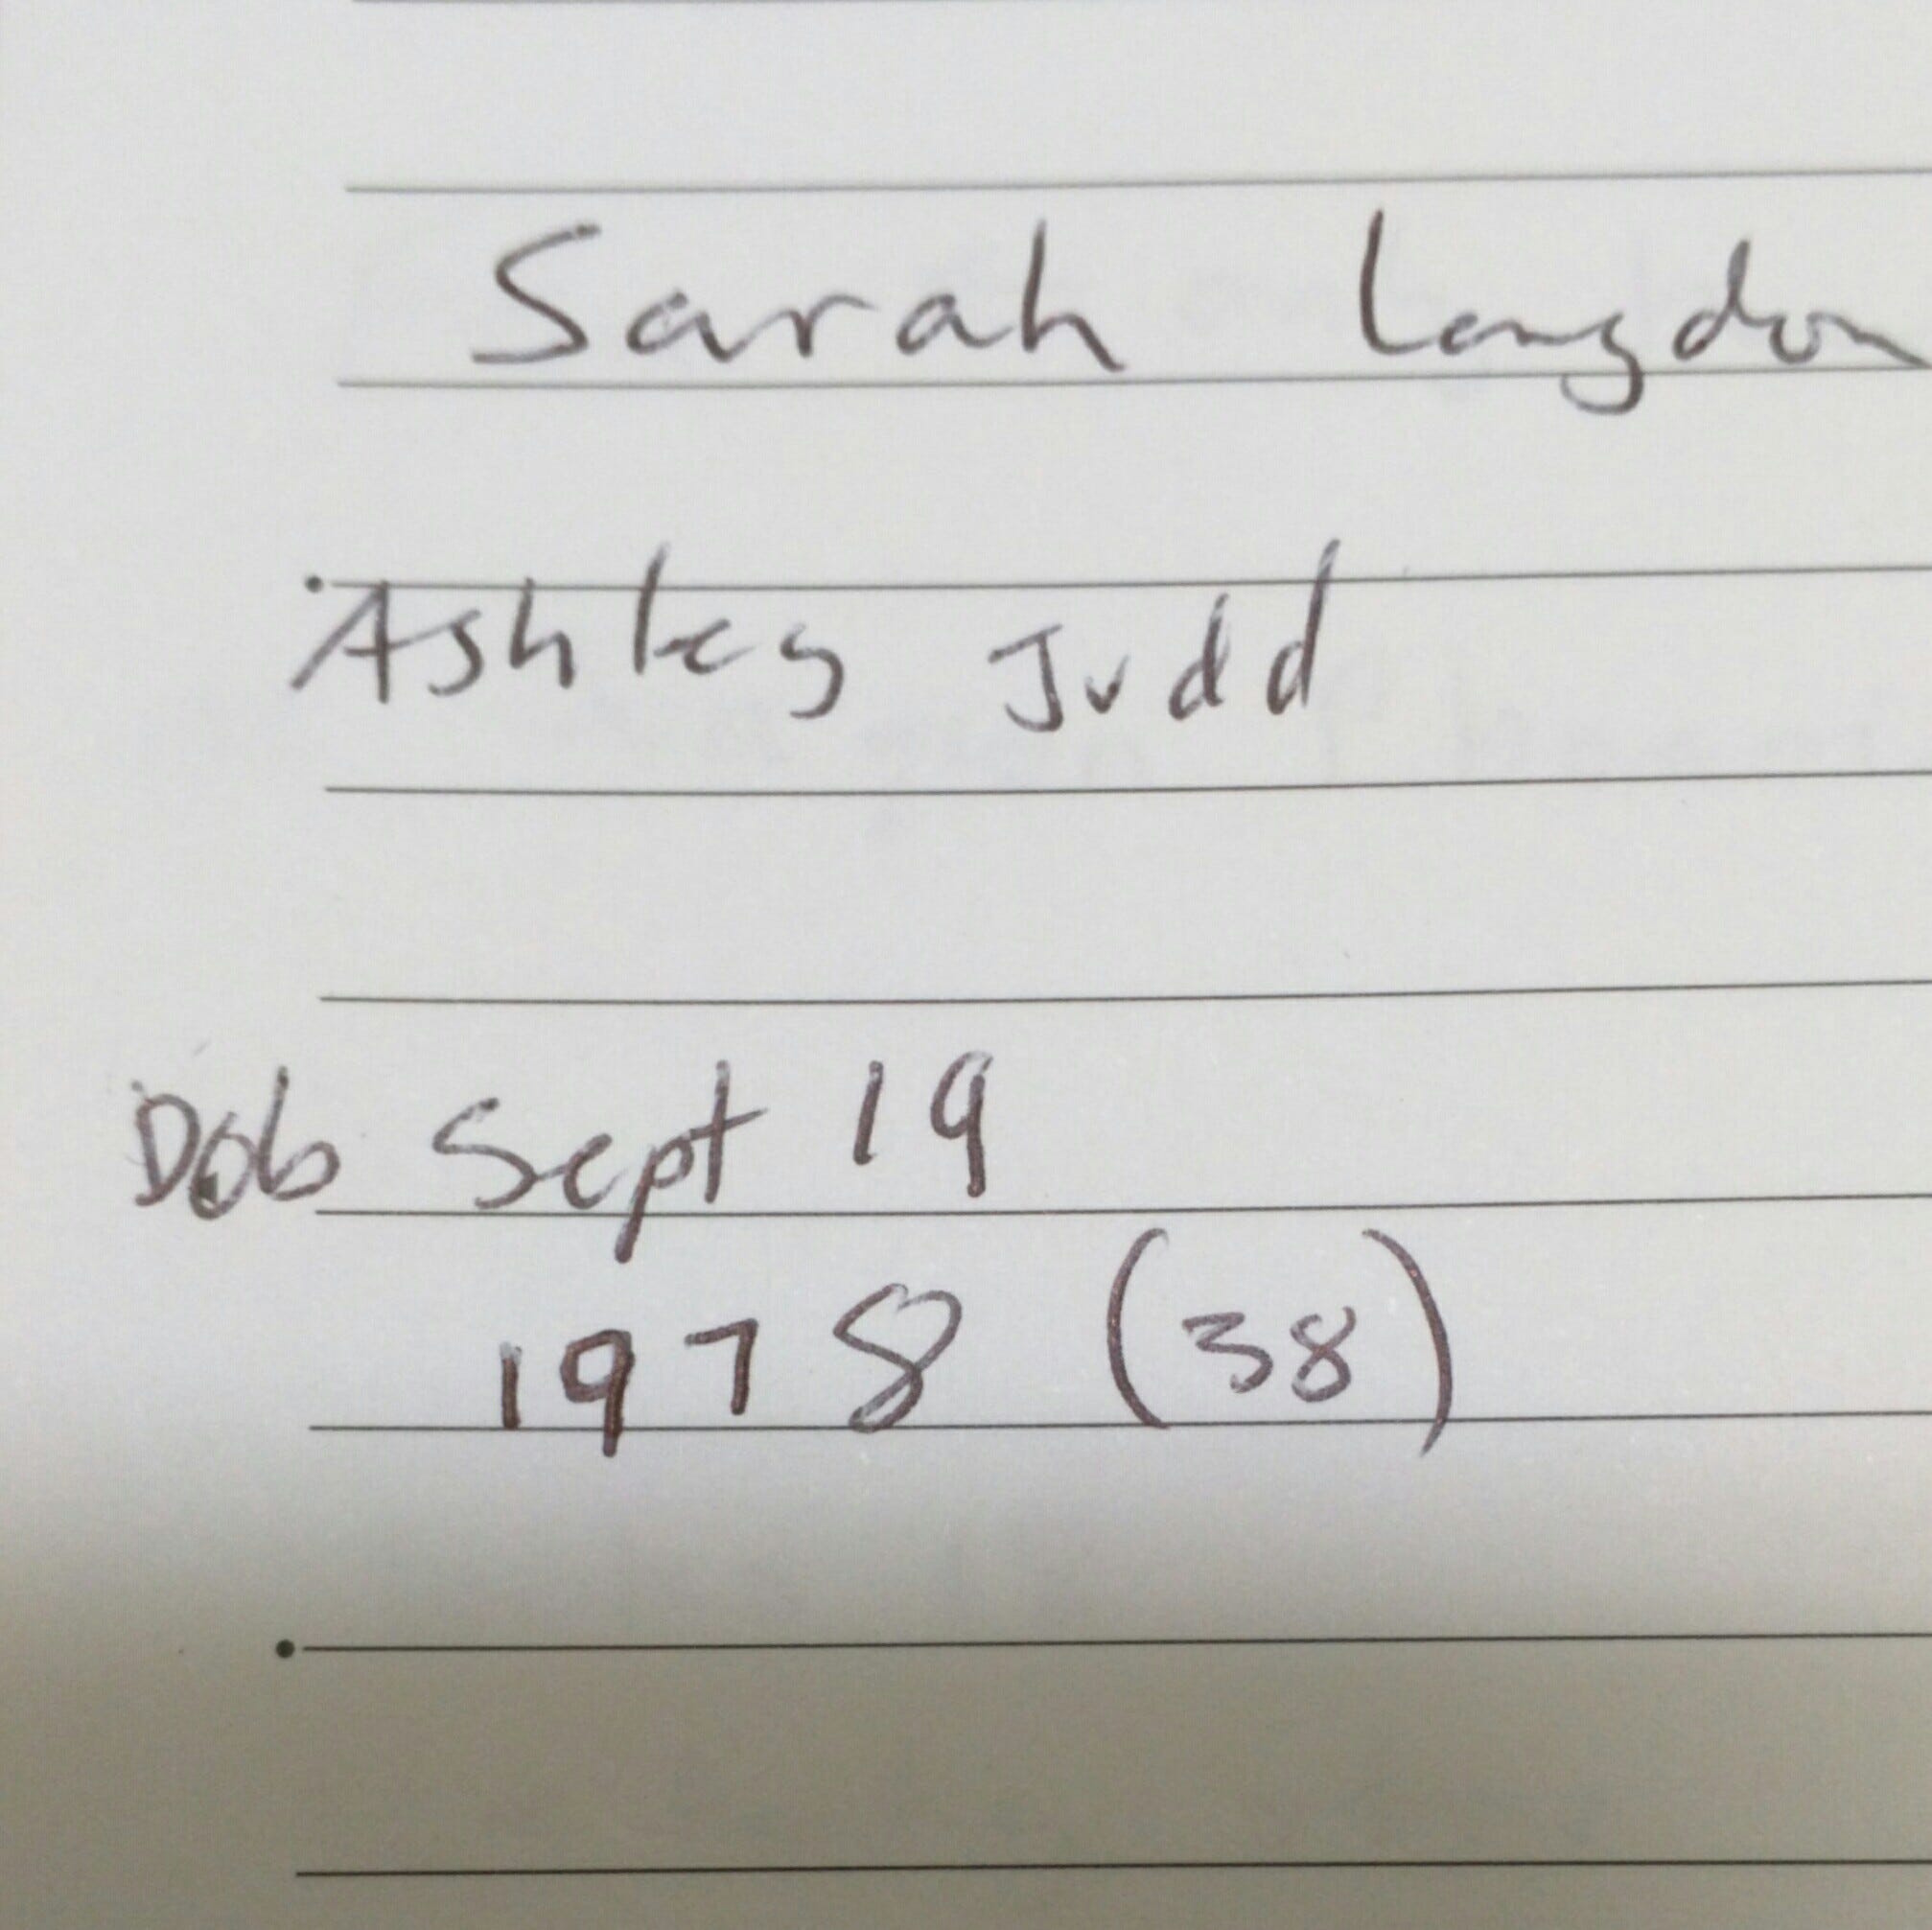 Sarah Langdon
Ashley Judd
Dob Sept 19
1978 (38)